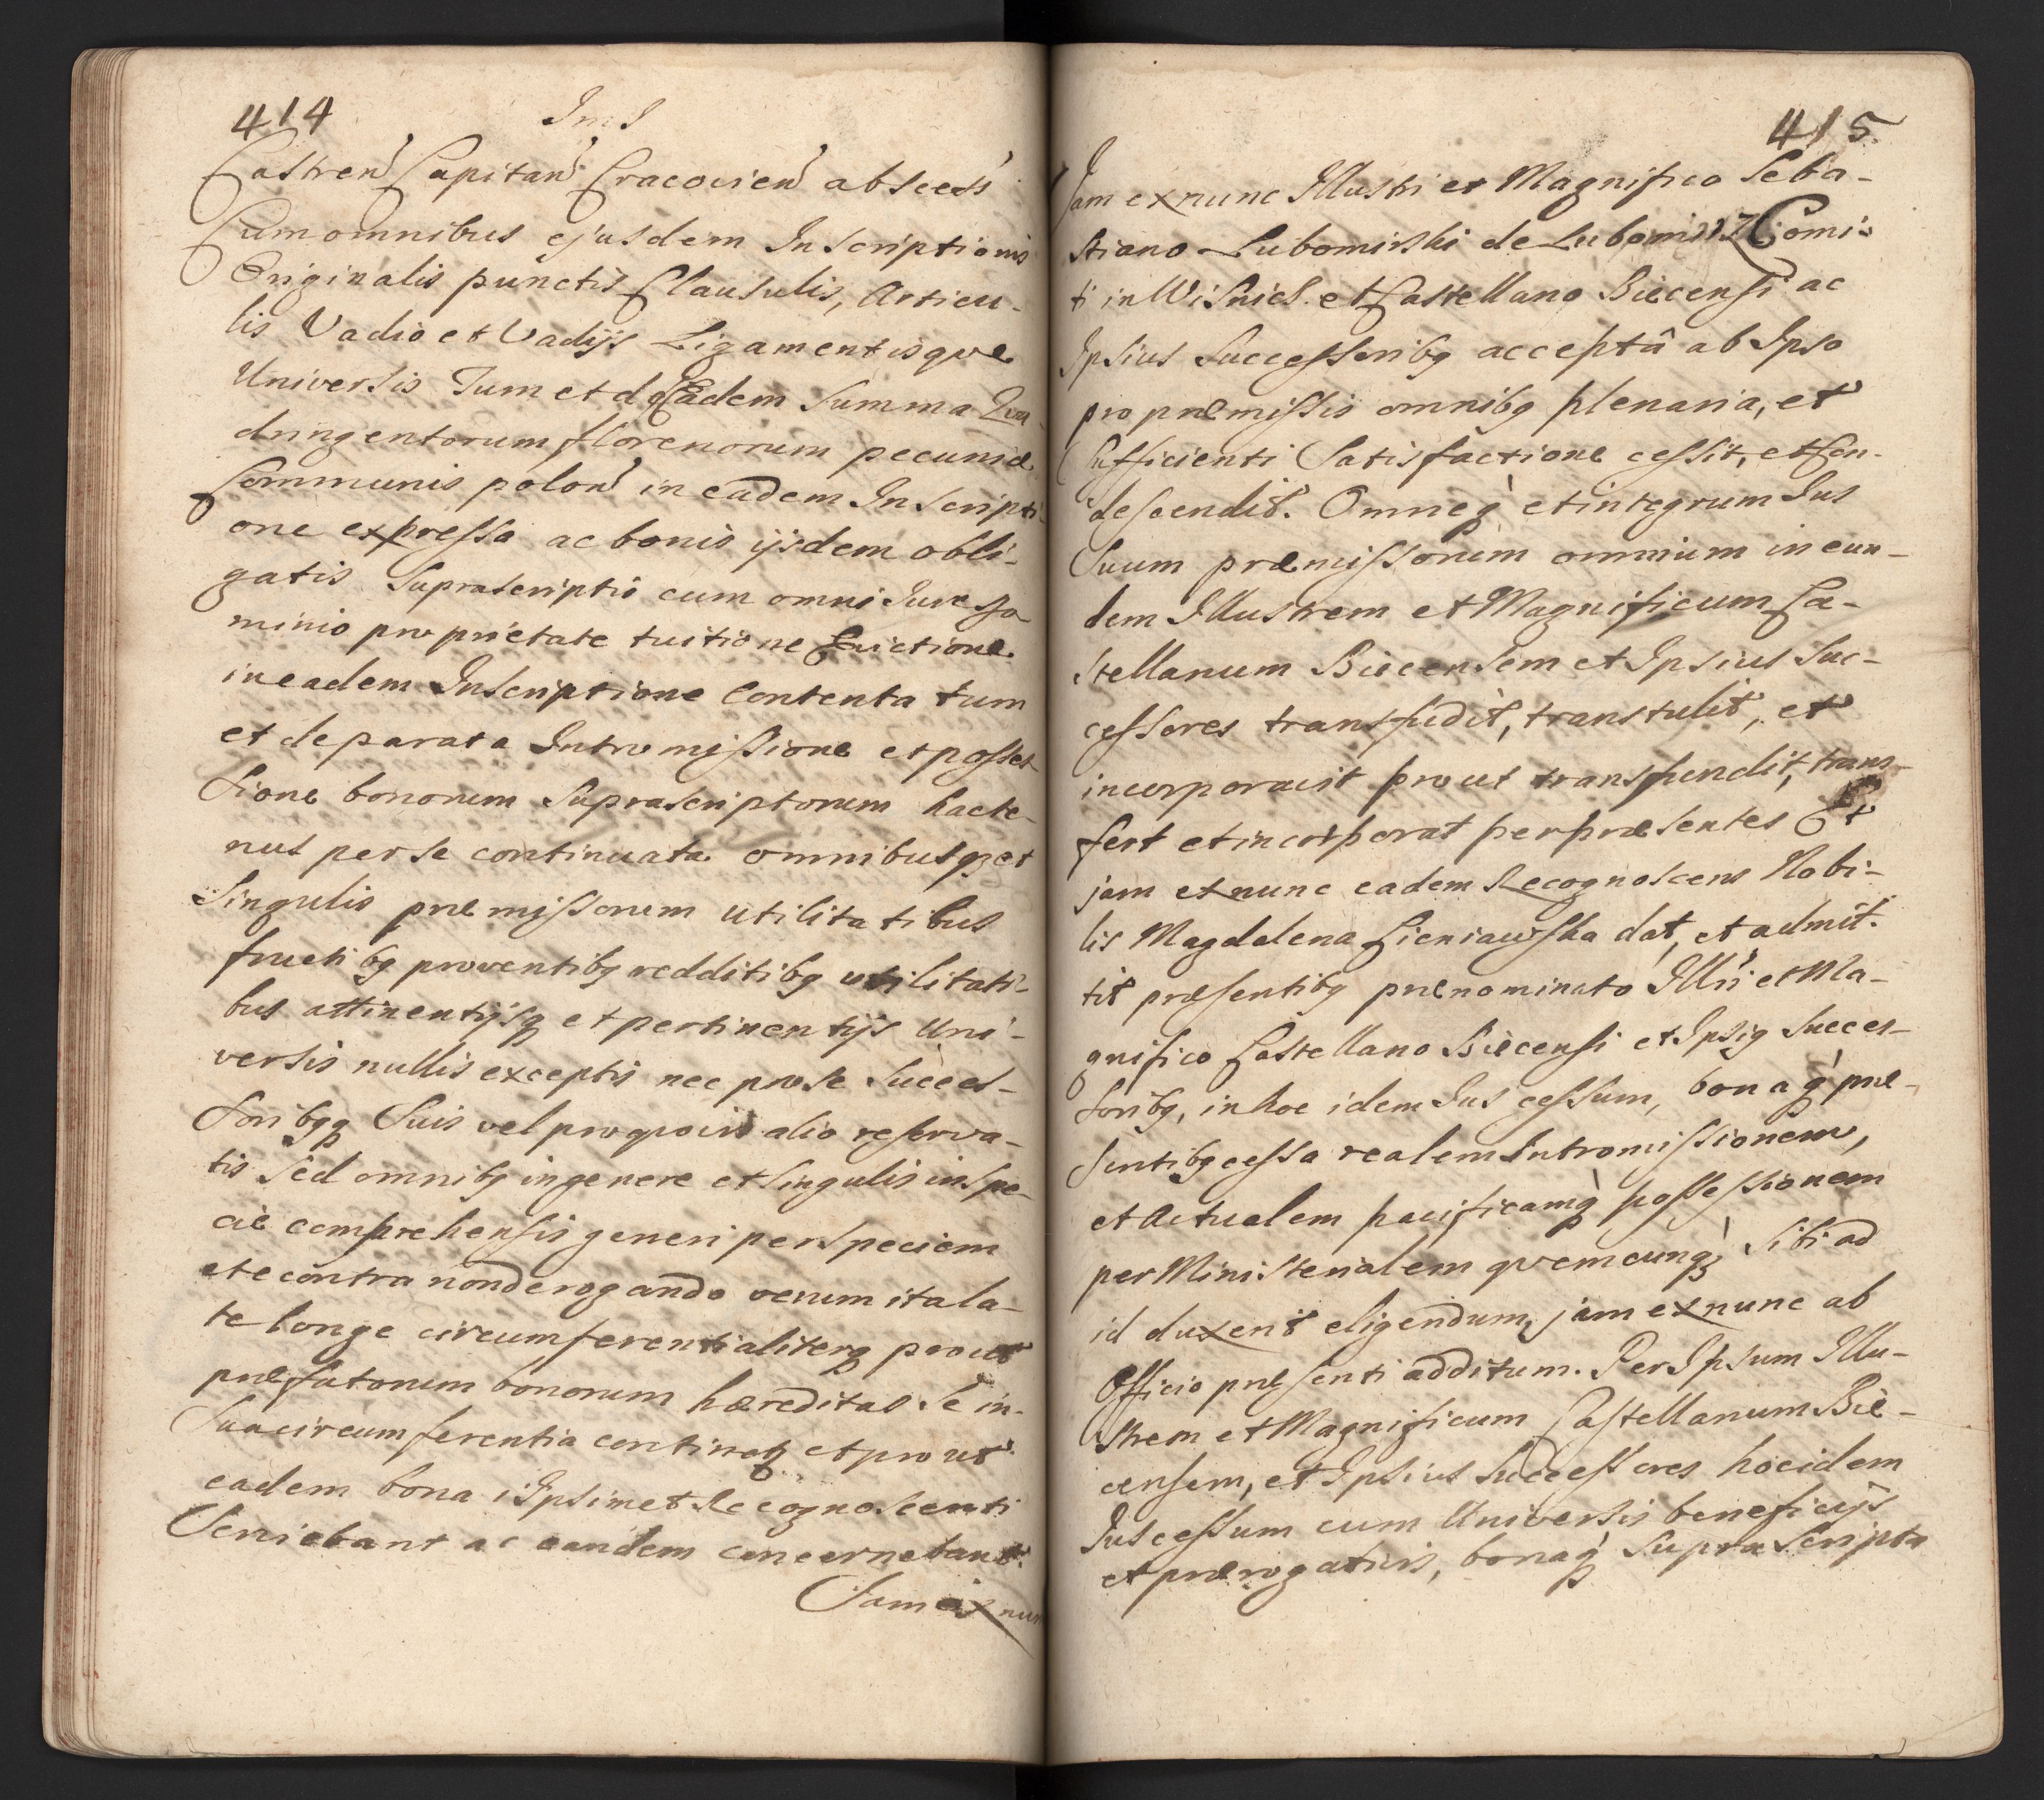 414
Castren Capitan Cracovien abscess
Cum omnibus ejusdem Inscriptionis
Originalis punctis Clausulis, Articu-
lis Vadio et Vadijs Ligamentisqve
Universis Tum et de Eadem Summa Qua-
dringentorum florenorum pecuniæ
Communis polon in eadem Inscripti-
one expressa ac bonis ijsdem obli-
gatis Suprascriptis cum omni Jure Do
minio proprietate tuitione Evictione
in eadem Inscriptione Contenta tum
et de parata Intromissione et posses-
sione bonorum Suprascriptorum hacte-
nus per se continuata omnibusq et
Singulis præmissorum utilitatibus
fructibq proventibq redditibq utilitati-
bus attinentijsq et pertinentijs Uni-
versis nullis exceptis nec pro se Succes-
soribqq Suis vel pro qvovis alio reserva-
tis Sed omnibq in genere et Singulis in Spe-
cie comprehensis generi per Speciem
et e contra non derogando verum ita la-
te longe circumferentialiterq prout
præfatorum bonorum hæreditas Se in
Sua circumferentia continet et prout
eadem bona Ipsimet Recognoscenti
Serviebant ac eandem concernebant.
Jam ex nun
415
Jam ex nunc Illustri et Magnifico Seba-
stiano Lubomirski de Lubomirz Comi-
ti in Wisnicz et Castellano Biecensi ac
Ipsius Successoribq acceptâ ab Ipso
pro præmissis omnibq plenaria, et
Sufficienti Satisfactione cessit, et Con-
descendit. Omneq et integrum Jus
Suum præmissorum omnium in eun-
dem Illustrem et Magnificum Ca-
stellanum Biecensem et Ipsius Suc-
cessores transfudit, transtulit, et
incorporavit prout transfundit, trans-
fert et incorporat per præsentes Et
jam ex nunc eadem Recognoscens Nobi-
lis Magdalena Cieniawska dat, et admit-
tit præsentibq prænominato Illri et Ma-
gnifico Castellano Biecensi et Ipsiq Succes-
soribq, in hoc idem Jus cessum, bonaq præ-
sentibq cessa realem Intromissionem,
et Actualem pacificamq possessionem
per Ministerialem qvemcunq, Sibi ad
id duxerit eligendum, jam ex nunc ab
Officio præsenti additum. Per Ipsum Illu-
strem et Magnificum Castellanum Bie-
censem, et Ipsius Successores hoc idem
Jus cessum cum Universis beneficijs
et prærogativis, bonaq Supra Scripta